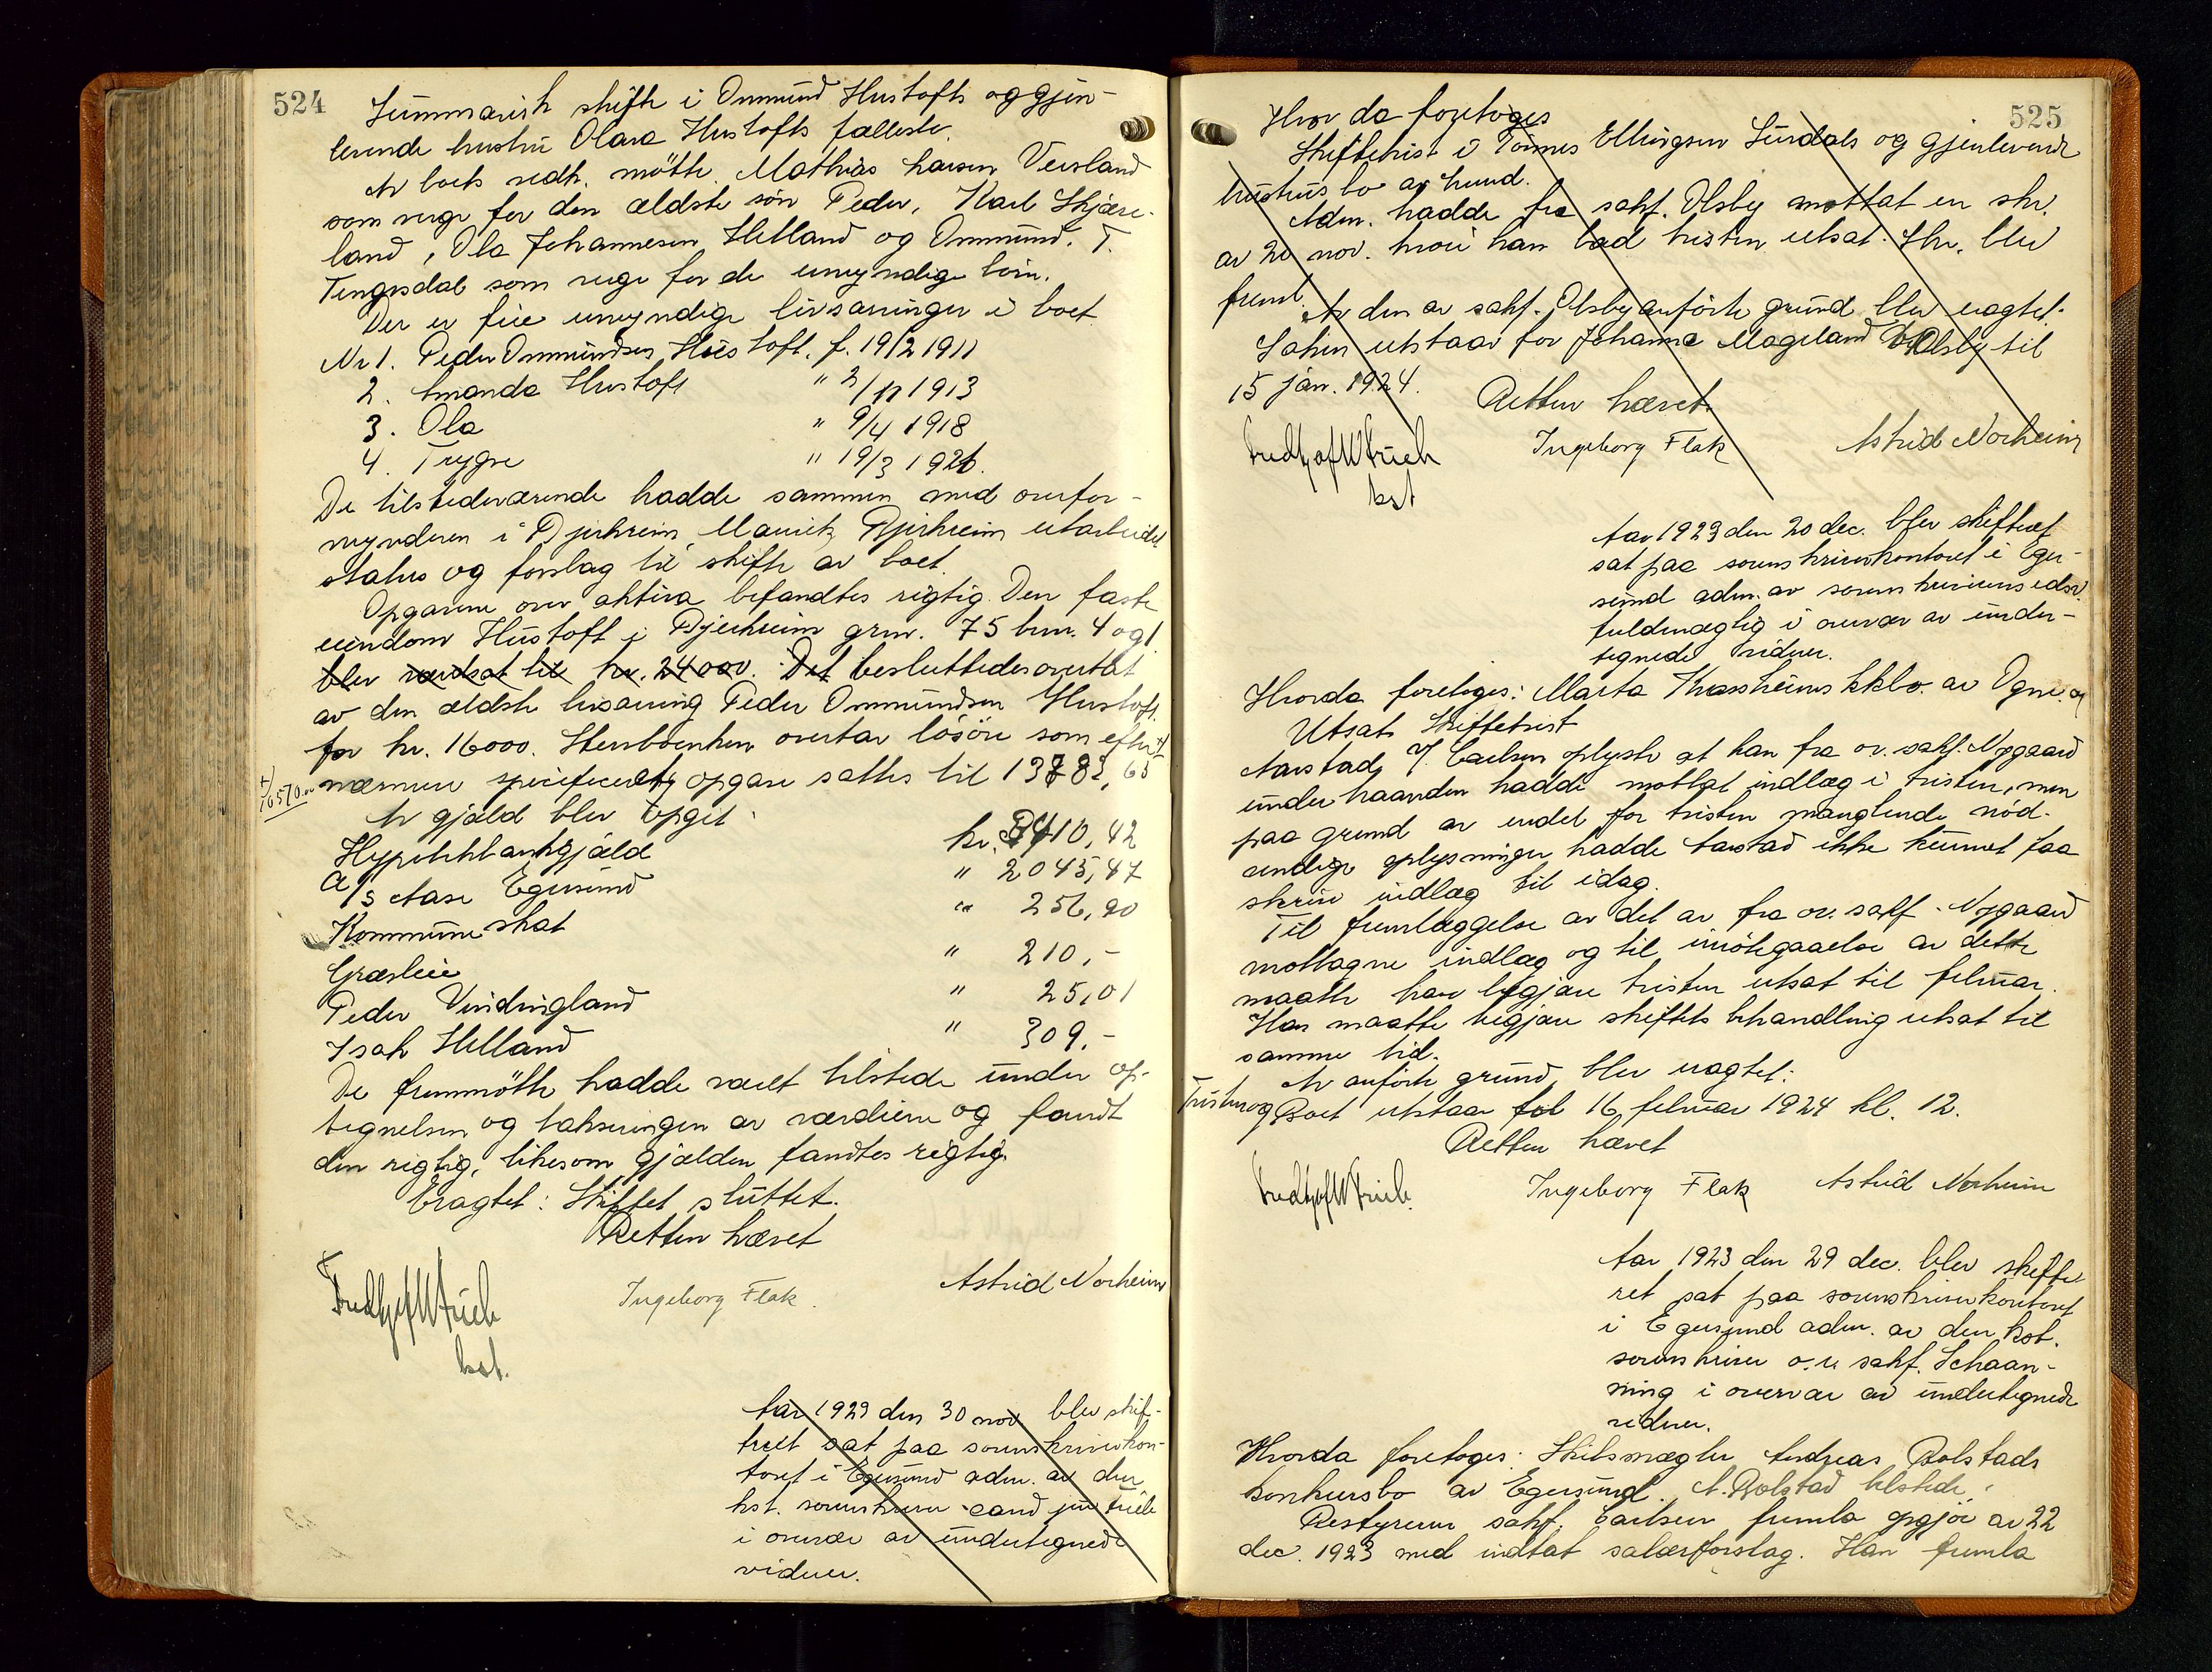 524
Summarisk skifte i Ommund Hustofts og gjen-
levende hustru Olava Hustofts fællesbo.
Av boets vedk. mötte. Mathias Larsen Versland
som verge for den ældste søn Peder, Karl Skjæve-
land, Ola Johannesen Helland og Ommund. T.
Tengesdal som verge for de umyndige børn.
Der er fire umyndige livsarvinger i boet
Nr 1. Peder Ommundsen Hustoft, f. 19/2 1911
2. Amanda Hustoft " 2/11 1913
3. Ola " 9/4 1918
4. Trygve " 19/3 1921.
De tilstedeværende hadde sammen med overfor-
mynderen i Bjerkreim Mauritz Bjerkreim utarbeidet
status og forslag til skifte av boet.
Opgaven over aktiva befandtes rigtig. Den faste
eiendom Hustoft i Bjerkreim grnr. 75 brnr. 4 og 1
blev verdsat til kr. 24000. Det besluttedes overtat
av den ældste livsarving Peder Ommundsen Hustoft.
for kr. 16000. Sterboenken overtar løsøre som efter
+) 16570.-
nærmere specificert opgave sattes til 13782,65 +)
Av gjæld blev opgit:
Hypothekbankgjæld kr. 8410,42
A/s Aase Egersund " 2045,47
Kommuneskat " 256,90
Græsleie " 210,-
Peder Vindingland " 25,01
Isak Helland " 309.-
De fremmötte hadde været tilstede under op-
tegnelsen og takseringen av værdiene og fandt
den rigtig, likesom gjælden fandtes rigtig.
Eragtet: Skiftet sluttet.
Retten hævet
Ingeborg Flak. Astrid Norheim
kst.
Aar 1923 den 30 nov blev skif-
teret sat paa sorenskriverkon-
toret i Egersund adm. av den
kst. sorenskriver cand jur Friele
i overvær av undertegnede
vidner.
525
Hvor da foretoges
Skiftetvist i Tönnes Ellingsen Surdals og gjenlevende
hustrus bo av Lund.
Adm. hadde fra sakf. Olsby mottat en skr.
av 20 nov. hvori han bad tvisten utsat. Skr. blev
freml.
Av den av sakf. Olsby anförte grund blev eragtet:
Saken utstaar for Johanna Mageland Olsby til
15 jan. 1924.
Retten hævet.
Ingeborg Flak Astrid Norheim
kst
Aar 1923 den 20 dec. blev skifteret
sat paa sorenskriverkontoret i Eger-
sund adm. av sorenskriverens edsv.
fuldmægtig i overvær av under-
tegnede vidner.
Hvorda foretoges: Marta Thrassheims kkbo. av Ogna. og
Utsat Skiftetvist
Aarstad f/ Carlsen oplyste at han fra ov. sakf. Nygaard
under haanden hadde mottat indlæg i tvisten, men
paa grund av endel for tvisten manglende nød-
vendige oplysninger hadde Aarstad ikke kunnet faa
skrive indlæg til idag.
Til fremlæggelse av det av fra ov. sakf. Nygaard
mottagne indlæg og til imötegaaelse av dette
maatte han begjære tvisten utsat til februar.
Han maatte begjære skiftets behandling utsat til
samme tid.
Av anförte grund blev eragtet:
Tvisten og Boet utstaar til 16 februar 1924 kl. 12.
Retten hævet
Ingeborg Flak Astrid Norheim
Aar 1923 den 29 dec. blev skifte-
ret sat paa sorenskriverkontoret
i Egersund adm. av den kst.
sorenskriver o.r. sakf. Schaan-
ning i overvær av undertegnede
vidner.
Hvorda foretoges: Skibsmægler Andreas Bolstads
konkursbo av Egersund. A. Bolstad tilstede.
Bestyreren sakf. Carlsen fremla opgjør av 22
dec. 1923 med indtat salærforslag. Han fremla